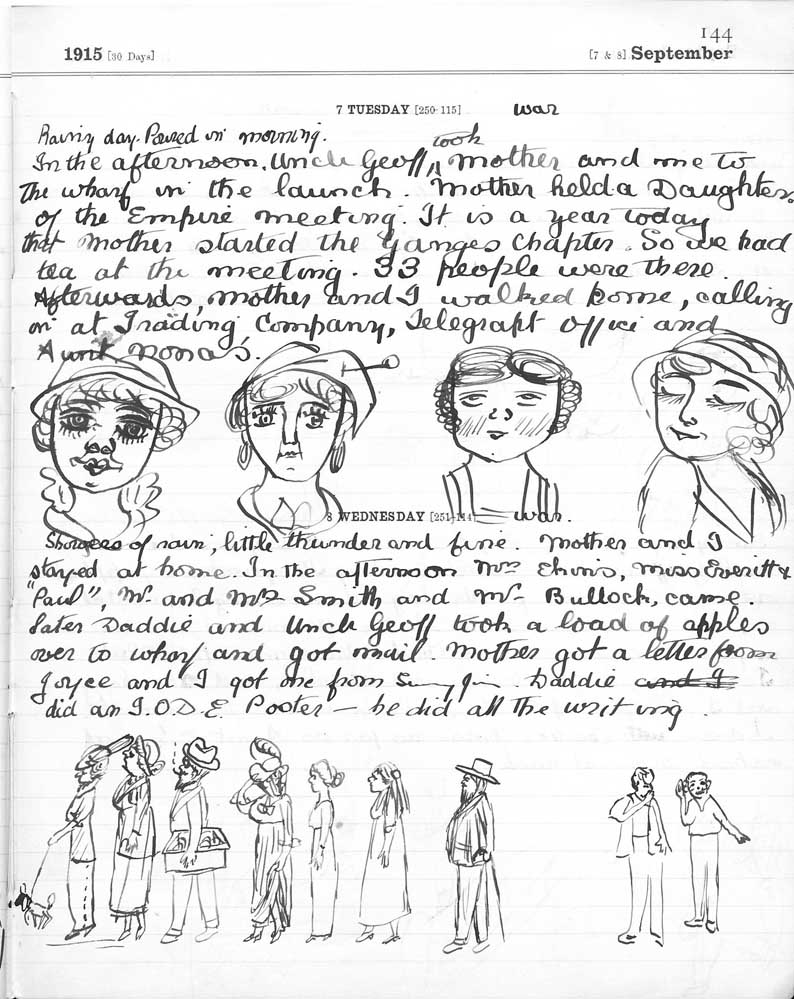 144
1915 [30 Days] [7 & 8] September
7 TUESDAY [250-115] war
Rainy day. Poured in morning.
took
In the afternoon, Uncle Geoff ^ Mother and me to
the wharf in the launch. Mother held a Daughters
of the Empire meeting. It is a year today
that Mother started the Ganges Chapter. So we had
tea at the meeting. 33 people were there.
Afterwards, mother and I walked home, calling
in at Trading Company, Telegraph Office and
Aunt Nona's.
8 WEDNESDAY [251-114] war.
Showers of rain, little thunder and fine. Mother and I
stayed at home. In the afternoon Mrs Elvins, Miss Everitt &
"Paul", Mr and Mrs Smith and Mr Bullock, came.
Later Daddie and Uncle Geoff took a load of apples
over to wharf and got mail. Mother got a letter from
Joyce and I got one from Sunny Jim. Daddie and I
did an I.O.D.E. Poster – he did all the writing.